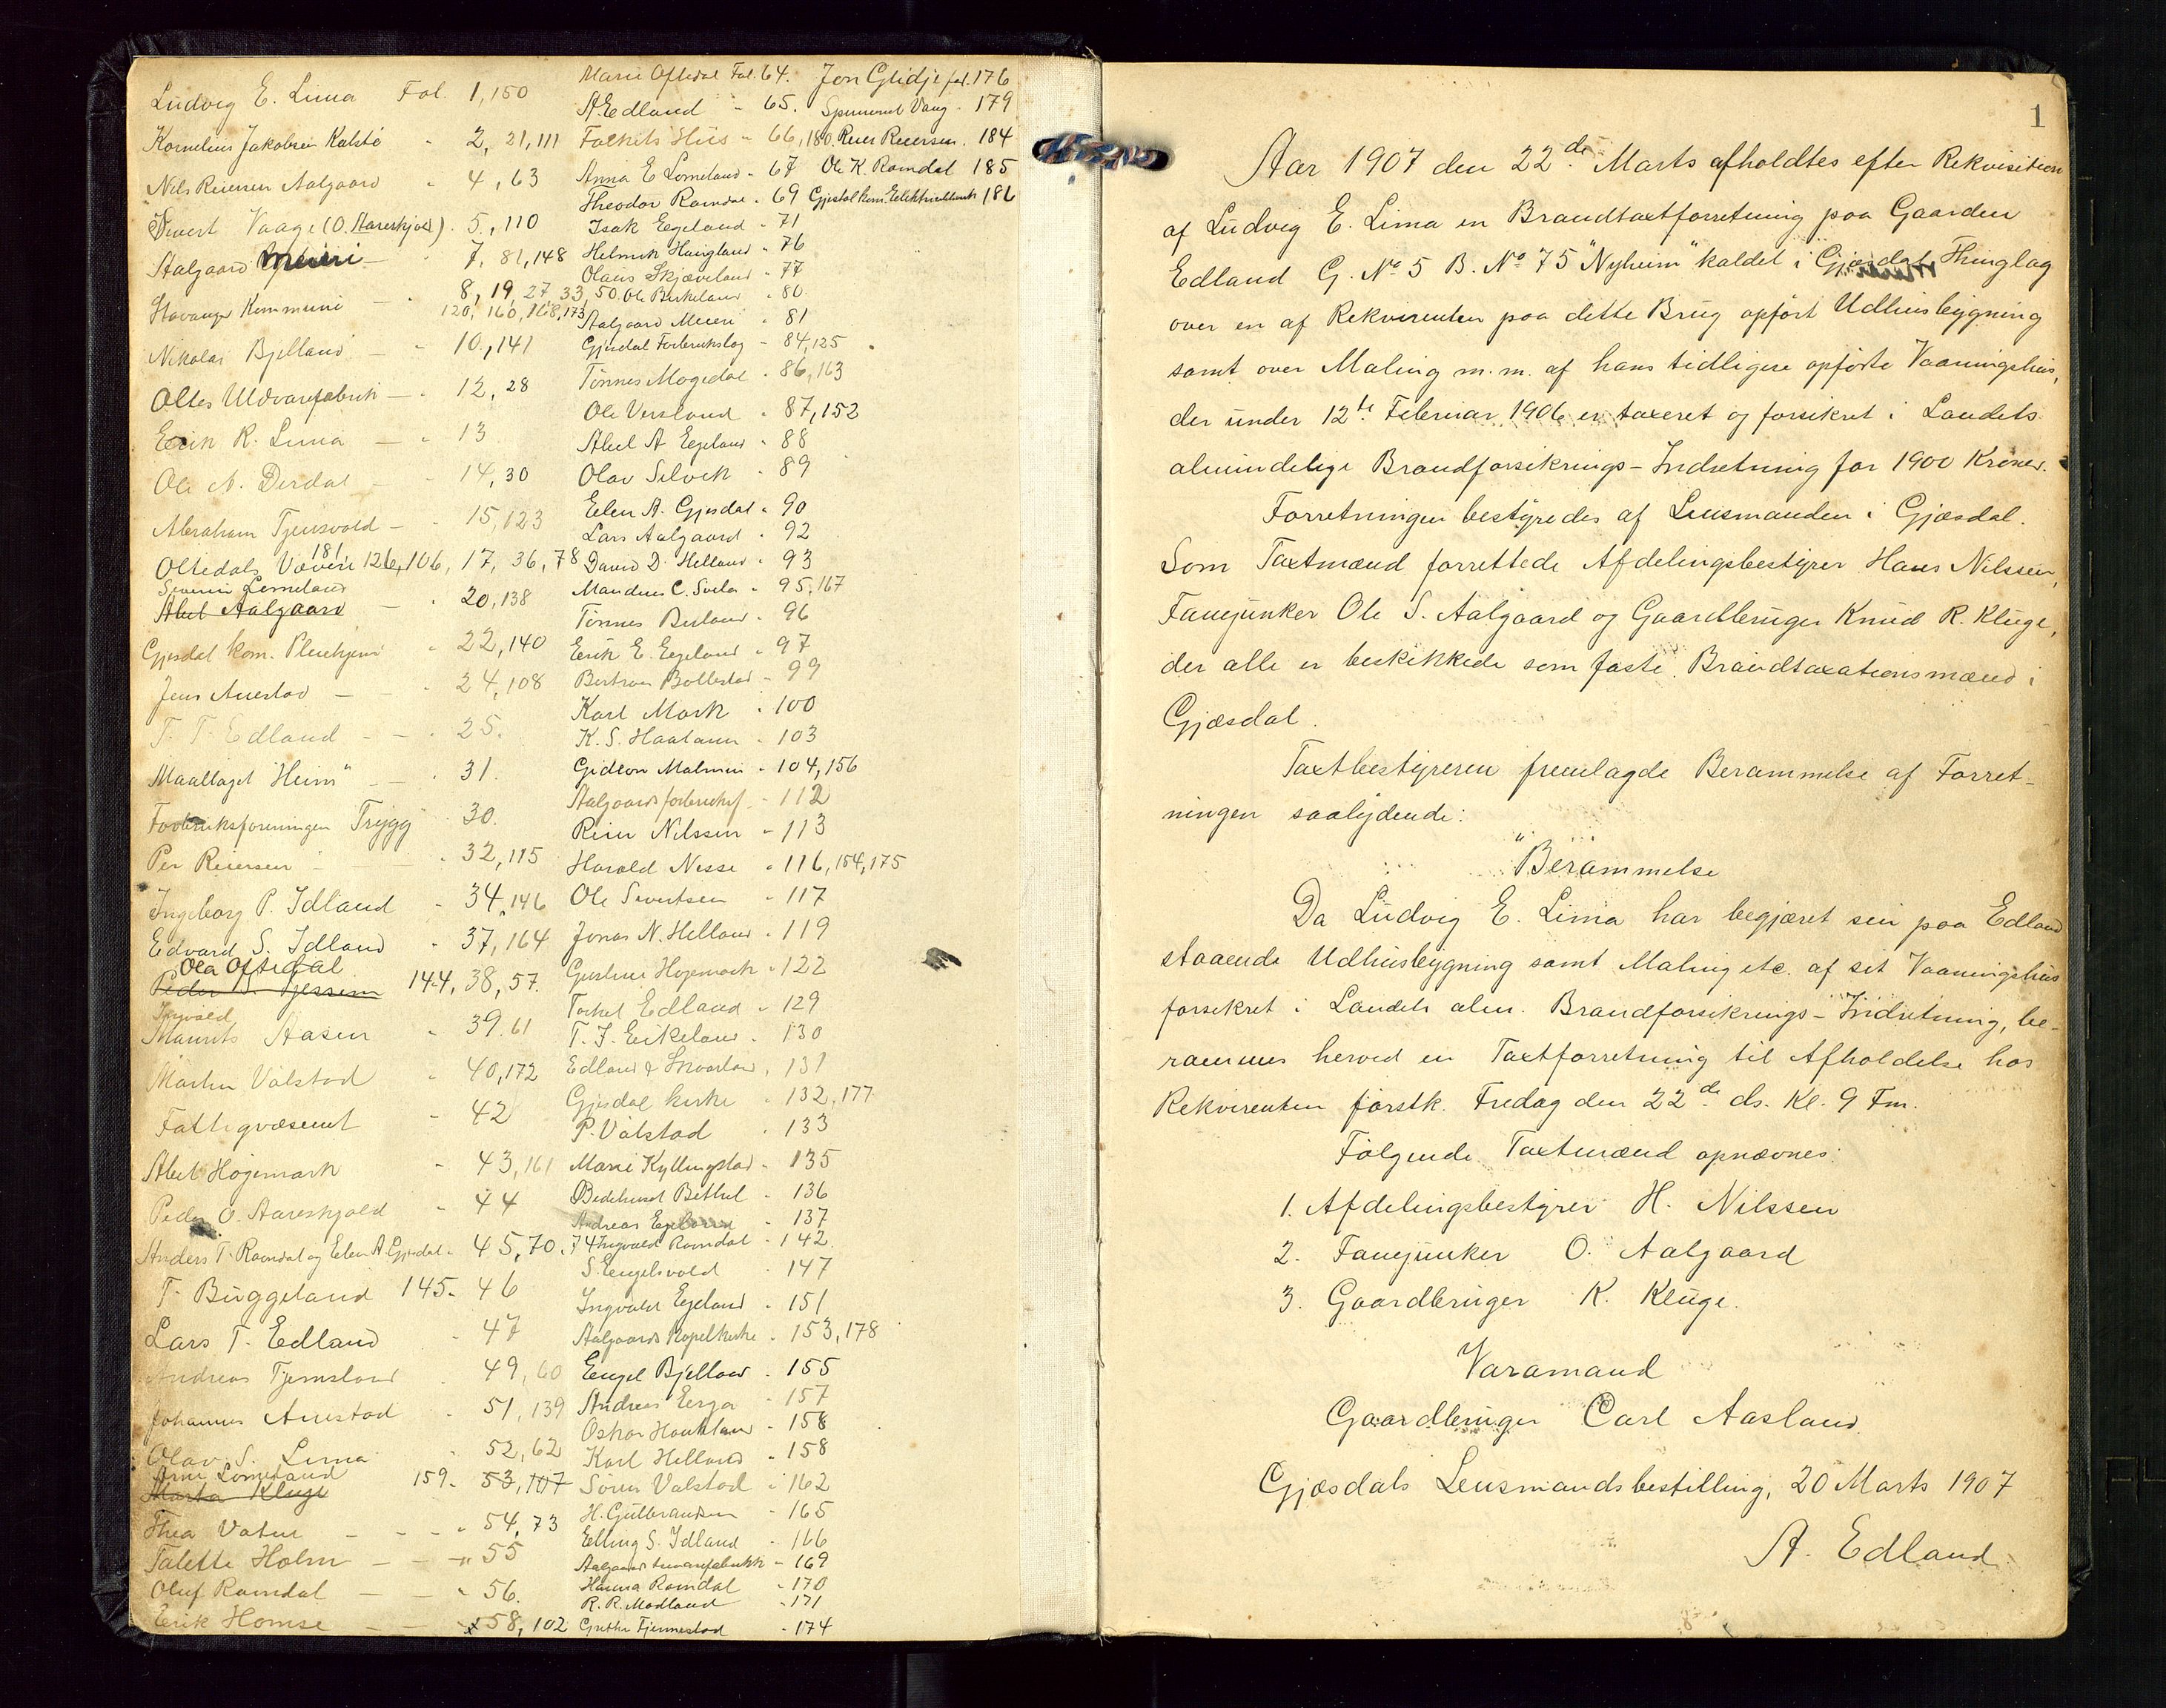 Ludvig E. Lima Fol. 1, 150
Kornelius Jakobsen Kalstø " 2, 21, 111
Nils Reiersen Aalgaard " 4, 63
Sivert Vaage (O. Aareskjold) " 5, 110
Aalgaard Meieri — " 7, 81, 148
Stavanger Kommune — " 8, 19, 27, 33, 50.
120, 160, 168, 173
Nikolai Bjelland — " 10, 141
Oltes Uldvarefabrik — " 12, 28
Erik R. Lima — " 13
Ole N. Dirdal — " 14, 30
Abraham Tjensvold — " 15, 123
181
Oltedals Væveri 126, 106, 17, 36, 78
Severin Lomeland
Abel Aalgaard — " 20, 138
Gjesdal kom. Pleiehjem " 22, 140
Jens Auestad — " 24, 108
T. T. Edland — " 25.
Maallaget "Heim" — " 31.
Forbruksforeningen Trygg 30.
Per Reiersen — " 32, 115
Ingeborg P. Idland " 34, 146
Edvard S. Idland " 37, 164
Ola Oftedal
Peder 144, 38, 57.
Ingvald
Maurits Aasen " 39, 61
Martin Valstad " 40, 172
Fattigvæsenet " 42
Abel Høgemark " 43, 161
Peder O. Aareskjold " 44
Anders T. Ravndal og Elen A. Gjesdal " 45, 70, 74
T. Buggeland 145. 46
Lars T. Edland " 47
Andreas Tjemsland " 49, 60
Johannes Auestad " 51, 139
Olav S. Lima " 52, 62
Arne Lomeland
Marta Kluge 159. 53, 107
Thea Vatne — " 54, 73
Talette Holm — " 55
Oluf Ravndal — " 56.
Erik Homse — " 58, 102
Marie Oftedal Fol. 64.
A. Edland " 65.
Folkets Hus " 66, 180
Anna E Lomeland " 67
Theodor Ravndal " 69
Isak Egeland " 71
Helmik Haugland " 76
Olaus Skjæveland " 77
Ole Birkeland " 80.
Aalgaard Meieri " 81
Gjesdal Forbrukslag " 84, 125
Tønnes Mogedal " 86, 163
Ole Versland " 87, 152
Abel A Egeland " 88
Olav Selvik " 89
Elen A. Gjesdal " 90
Lars Aalgaard " 92
David D. Helland " 93
Mandius C. Svela " 95, 167
Tønnes Birland " 96
Erik E. Egeland " 97
Bertran Bollestad " 99
Karl Mork " 100
K. S. Haaland " 103
Gideon Malmin " 104, 156
Aalgaards forbruksf. " 112
Reier Nilssen " 113
Harald Nesse " 116, 154, 175
Ole Sivertsen " 117
Jonas N. Helland " 119
Gustine Høgemark " 122
Torkel Edland " 129
T. J. Eikeland " 130
Edland & Skurtland " 131
Gjesdal kirke " 132, 177
P. Valstad " 133
Marie Kyllingstad " 135
Bedehuset Bethel " 136
Andreas Egeland " 137
Ingvald Ravndal " 142
S. Engelsvold " 147
Ingvald Egeland " 151
Aalgaards Kapelkirke " 153, 178
Engel Bjelland " 155
Andreas Erga " 157
Oskar Haukland " 158
Karl Helland " 158
Søren Valstad " 162
H. Gulbrandsen " 165
Elling S. Idland " 166
Aalgaards uvarefabrikk " 169
Hanna Ravndal " 170
R. R. Madland " 171
Grethe Fjermestad " 174
Jon Glidje fol. 176
Vaag " 179
Reier Reiersen. 184
Ole K. Ravndal 185
Gjestal kom. Elektricitetsverk 186
1
Aar 1907 den 22de Marts afholdtes efter Rekvisition
af Ludvig E. Lima en Brandtaxtforretning paa Gaarden
Edland G. No 5 B. No 75 "Nyheim" kaldet i Gjæsdal Thinglag
over en af Rekvirenten paa dette Brug opført Udhusbygning
samt over Maling m. m. af hans tidligere opførte Vaaningshus,
der under 12te Februar 1906 er taxeret og forsikret i Landets
almindelige Brandforsikrings-Indretning for 1900 Kroner.
Forretningen bestyredes af Lensmanden i Gjæsdal.
Som Taxtmænd forrettede Afdelingsbestyrer Hans Nilssen,
Fanejunker Ole S. Aalgaard og Gaardbruger Knud R. Kluge,
der alle er beskikkede som faste Brandtaxationsmænd i
Gjæsdal.
Taxtbestyreren fremlagde Berammelse af Forret-
ningen saalydende:
"Berammelse
Da Ludvig E. Lima har begjæret sin paa Edland
staaende Udhusbygning samt Maling etc. af sit Vaaningshus
forsikret i Landets alm. Brandforsikrings-Indretning, be-
rammes herved en Taxtforretning til Afholdelse hos
Rekvirenten førstk. Fredag den 22de ds. Kl. 9 Fm.
Følgende Taxtmænd opnævnes:
1. Afdelingsbestyrer H. Nilssen
2. Fanejunker O. Aalgaard
3. Gaardbruger K. Kluge.
Varamand
Gaardbruger Carl Aasland
Gjæsdals Lensmandsbestilling, 20 Marts 1907
A. Edland